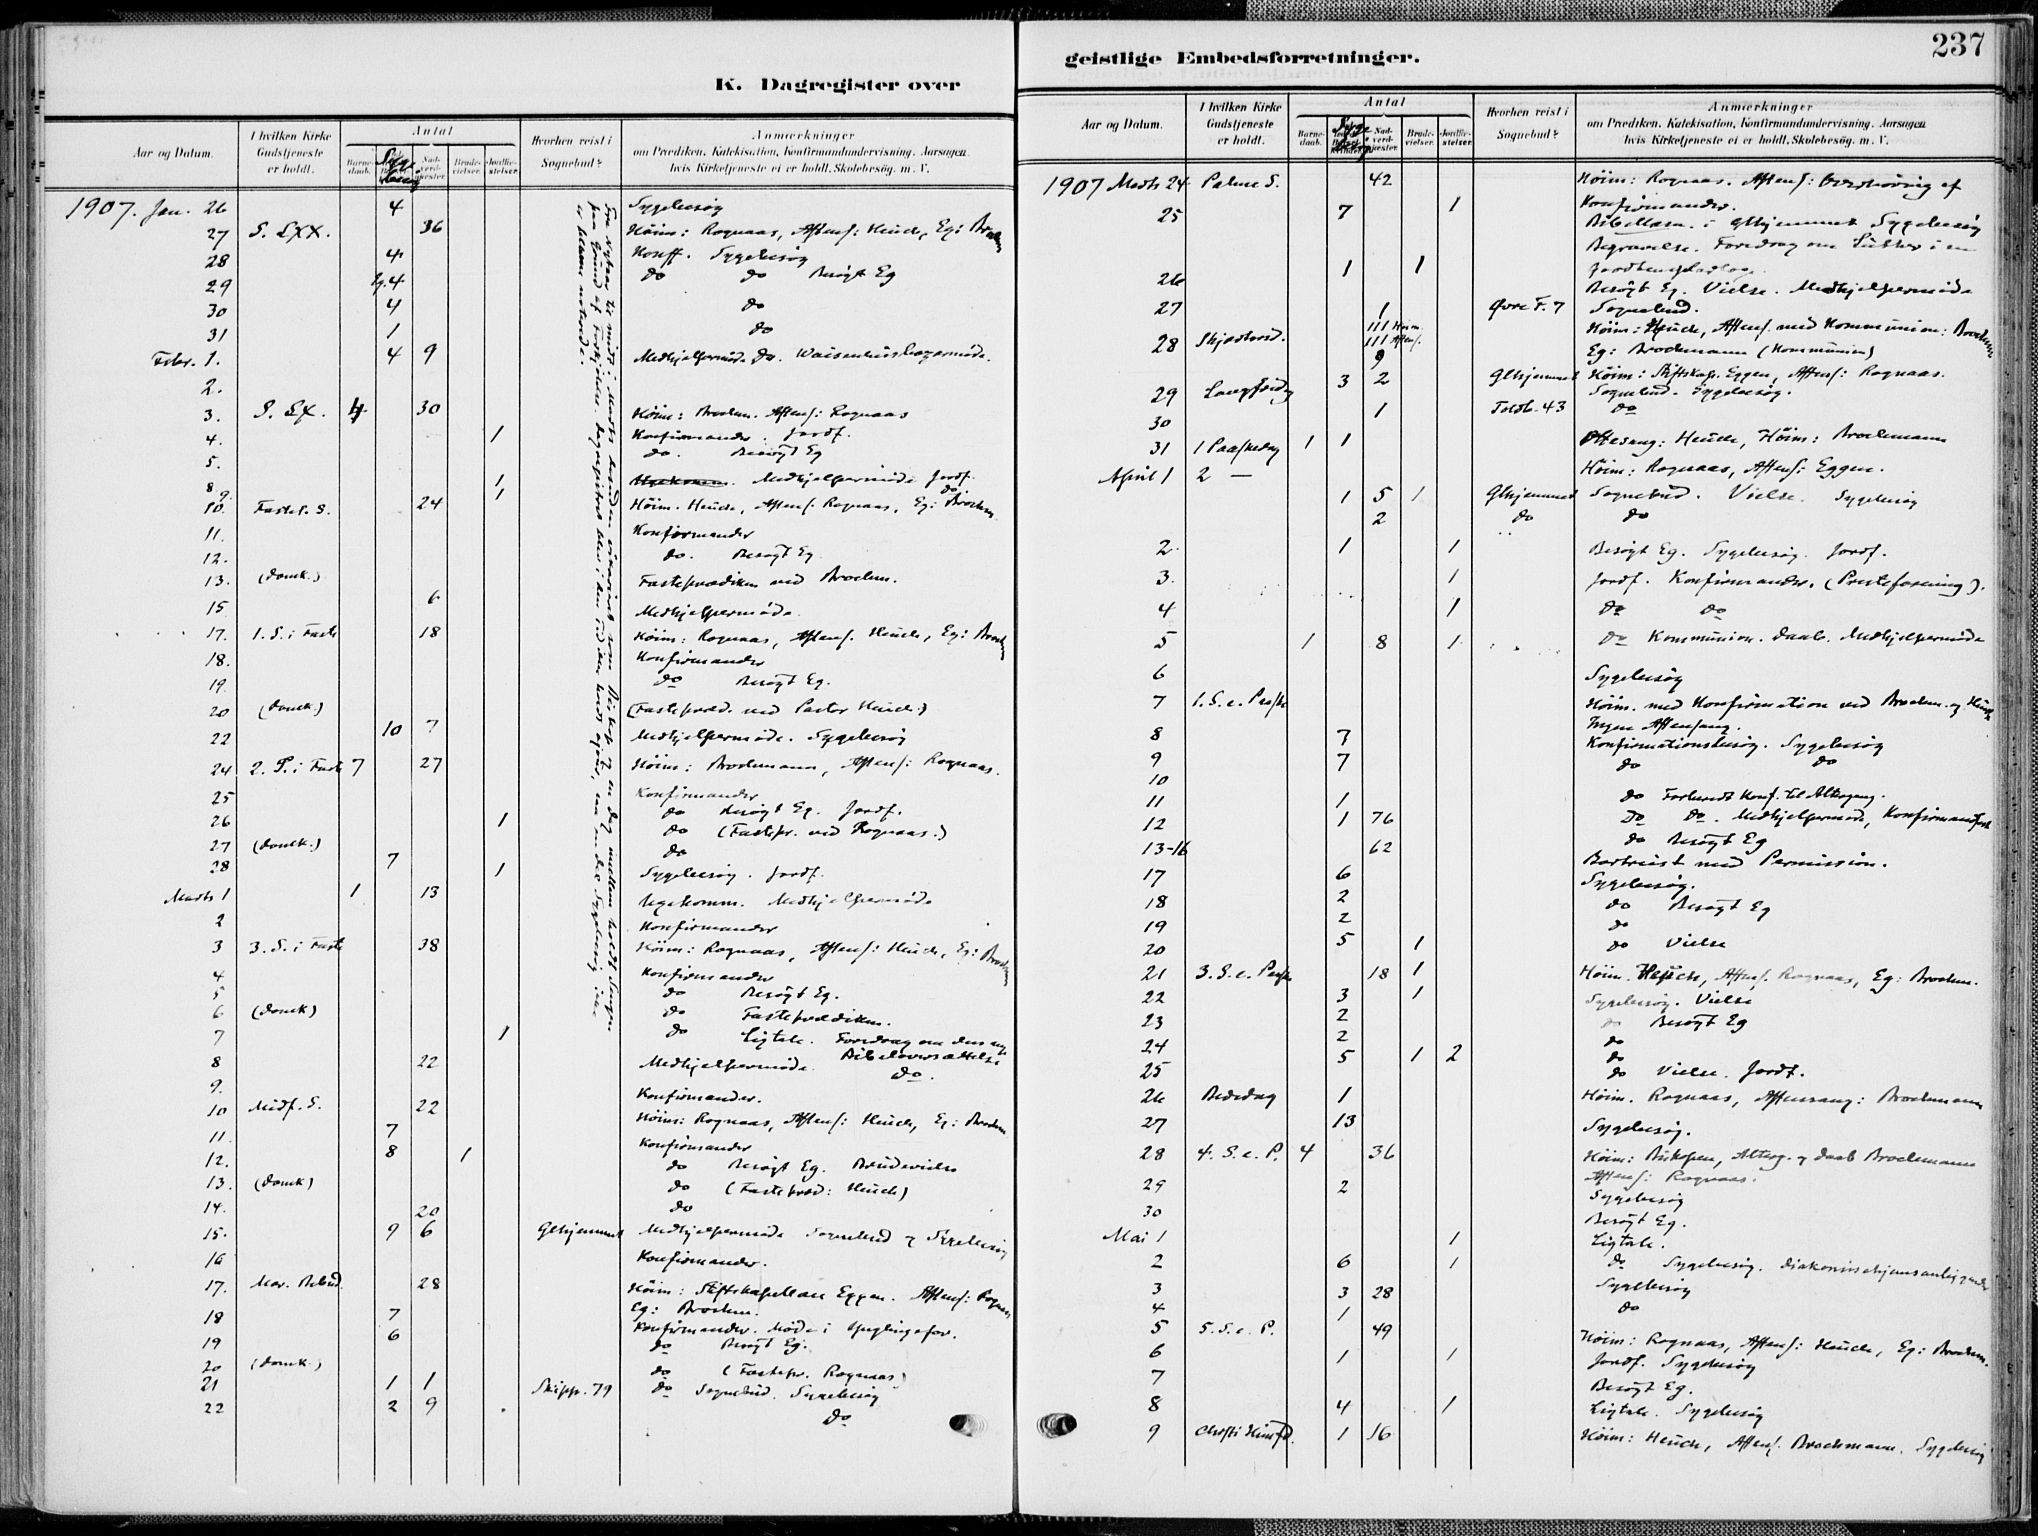 K. Dagregister over
Aar og Datum.
I hvilken Kirke Gudstjeneste er holdt.
Antal
Barne-daab.
Syge
Nad-verd-gjester.
Brude-vielser.
Jordfæ-stelser.
Hvorhen reist i Sognebud?
Anmærkninger
om Prædiken, Katekisation, Konfirmandundervisning, Aarsagen
hvis Kirketjeneste ei er holdt, Skolebesøg, m. V.
1907. Jan. 26 4 Sygebesøg
27 S. LXX. 36 Höim: Rognaas, Aftens: Heuch, Eg: Brochm
28 4 Konff. Sygebesøg
29 4 do do Besögt Eg
30 4 do
31 1 do
Febr. 1. 4 9 Medhjelpermöde do. Waisenhusbogermöde.
2.
3. S. LX. 4 30 Höim: Brochm. Aftens: Rognaas
4. 1 Konfirmander. Jordf.
5. do. Besögt Eg
8 1 Medhjelpermöde Jordf.
9. 1 do
10. Fastel. S. 24 Höim. Heuch, Aftens. Rognaas, Eg: Brochm.
11. Konfirmander
12. do. Besögt Eg
13. (Domk.) Fasteprædiken ved Brochm.
15 6 Medhjelpermöde
17. 1. S. i Faste 18 Höim: Rognaas, Aftens. Heuch, Eg: Brochm
18. Konfirmander
19. do Besögt Eg.
20 (Domk.) (Fastepræd. ved Pastor Heuch.)
22 10 7 Medhjelpermöde. Sygebesøg
24 2. S. i Faste 7 27 Höim: Brochmann, Aftens: Rognaas.
25 Konfirmander
26 1 do Besögt Eg. Jordf.
27 (Domk.) do (Fastepr. ved Rognaas.)
28 7 1 do
Sygebesøg. Jordf.
Marts 1 1 13 Ugekomm. Medhjelpermöde
2 Konfirmander
3 3. S. i Faste 38 Höim: Rognaas, Aftens: Heuch, Eg: Brochm
4 Konfirmander
5 do Besögt Eg.
6 (Domk) do Fasteprædiken.
7 1 do Ligtale. Foredrag om den nye
Bibeloversættelse
8 22 Medhjelpermöde do.
9. Konfirmander.
10 Midf. S. 22 Höim: Rognaas, Aftens: Heuch, Eg: Brochm
11. 7 Konfirmander
12. 8 1 do Besögt Eg. Brudevielse
13. (Domk) do (Fastepræd: Heuch)
14. 20 do
15. 9 6 Glhjemmet Medhjelpermöde Sognebud og Sygebesøg
16 Konfirmander.
17. Mar. Bebud. 28 Höim: Stiftskapellan Eggen. Aftens: Rognaas
Eg: Brochm.
18 7 Konfirmander. Möde i Ynglingefor.
19 6 do Besögt Eg.
20 (Domk.) do (Fastepr. Rognaas)
21 1 1 Skipp. 79 do Sognebud. Sygebesøg
22 2 9 do
geistlige Embedsforretninger.
237
Aar og Datum.
I hvilken Kirke Gudstjeneste er holdt.
Antal
Barne-daab.
Nad-verd-gjester.
Brude-vielser.
Jordfæ-stelser.
Hvorhen reist i Sognebud?
Anmærkninger
om Prædiken, Katekisation, Konfirmandundervisning, Aarsagen
hvis Kirketjeneste ei er holdt, Skolebesøg, m. V.
1907 Marts 24 Palme S. 42 Höim: Rognaas. Aftens: Overhöring af
Konfirmander.
25 7 1 Bibellæsn. i Glhjemmet Sygebesøg
Begravelse. Foredrag om
26 1 1 Besögt Eg. Vielse. Medhjelpermöde
27 1 Øvre F. 7 Sognebud.
28 Skjærtorsd. 111 Höim. Höim: Heuch, Aftens. med Kommunion: Brochm
111 Aftens.
9 Eg: Brochmann (Kommunion)
29 Langfredag 3 2 Glhjemmet Höim: Stiftskap. Eggen, Aftens: Rognaas.
Sognebud. Sygebesøg.
30 1 Toldb. 43 do
31 1 Paaskedag 1 1 Ottesang: Heuch, Höim: Brochmann
April 1 2 — Höim: Rognaas, Aftens: Eggen.
1 5 1 Glhjemmet Sognebud. Vielse. Sygebesøg
2 do do
2. 1 1 Besögt Eg. Sygebesøg. Jordf.
3. 1 Jordf. Konfirmander. (Presteforening).
4 1 do do
5 1 8 1 do Kommunion. Daab. Medhjelpermöde
6 Sygebesøg
7 1. S. e. Paaske Höim. med Konfirmation ved Brochm. og Heuch
Ingen Aftensang.
8 7 Konfirmationsbesøg. Sygebesøg
9 7 do do
10
11 1 do Forberedt Konf. til Altergang.
12 1 76 do do. Medhjelpermöde, Konfirmandfest
13-16 62 do Besögt Eg
Bortreist med Permission.
17 6 Sygebesøg.
18 2 do Besögt Eg
19 2 do
20 5 1 do Vielse
21 3. S. e. Paaske 18 1 Höim. Heuch, Aftens. Rognaas, Eg: Brochm.
22 3 1 Sygebesøg. Vielse
23 2 do Besögt Eg
24 2 do
25 5 1 2 do
do Vielse. Jordf.
26 Bededag 1 Höim. Rognaas, Aftensang: Brochmann
27 13 Sygebesøg.
28 4. S. e. P. 4 36 Höim: Biskopen, Alterg. og Daab Brochmann
Aftens: Rognaas.
29 2 Sygebesøg
30 Besögt Eg.
Mai 1 1 Ligtale.
2 6 1 do Sygebesøg.
3 3 28 Sygebesøg
4 1 do
5 5. S. e. P. 49 Höim: Rognaas, Aftens: Heuch, Eg: Brochm.
6 1 1 Jordf. Sygebesøg
7 Besögt Eg.
8 4 1 Ligtale. Sygebesøg
9 Christi Himfd. 1 16 Höim: Heuch, Aftens. Brochmann. Sygebesøg